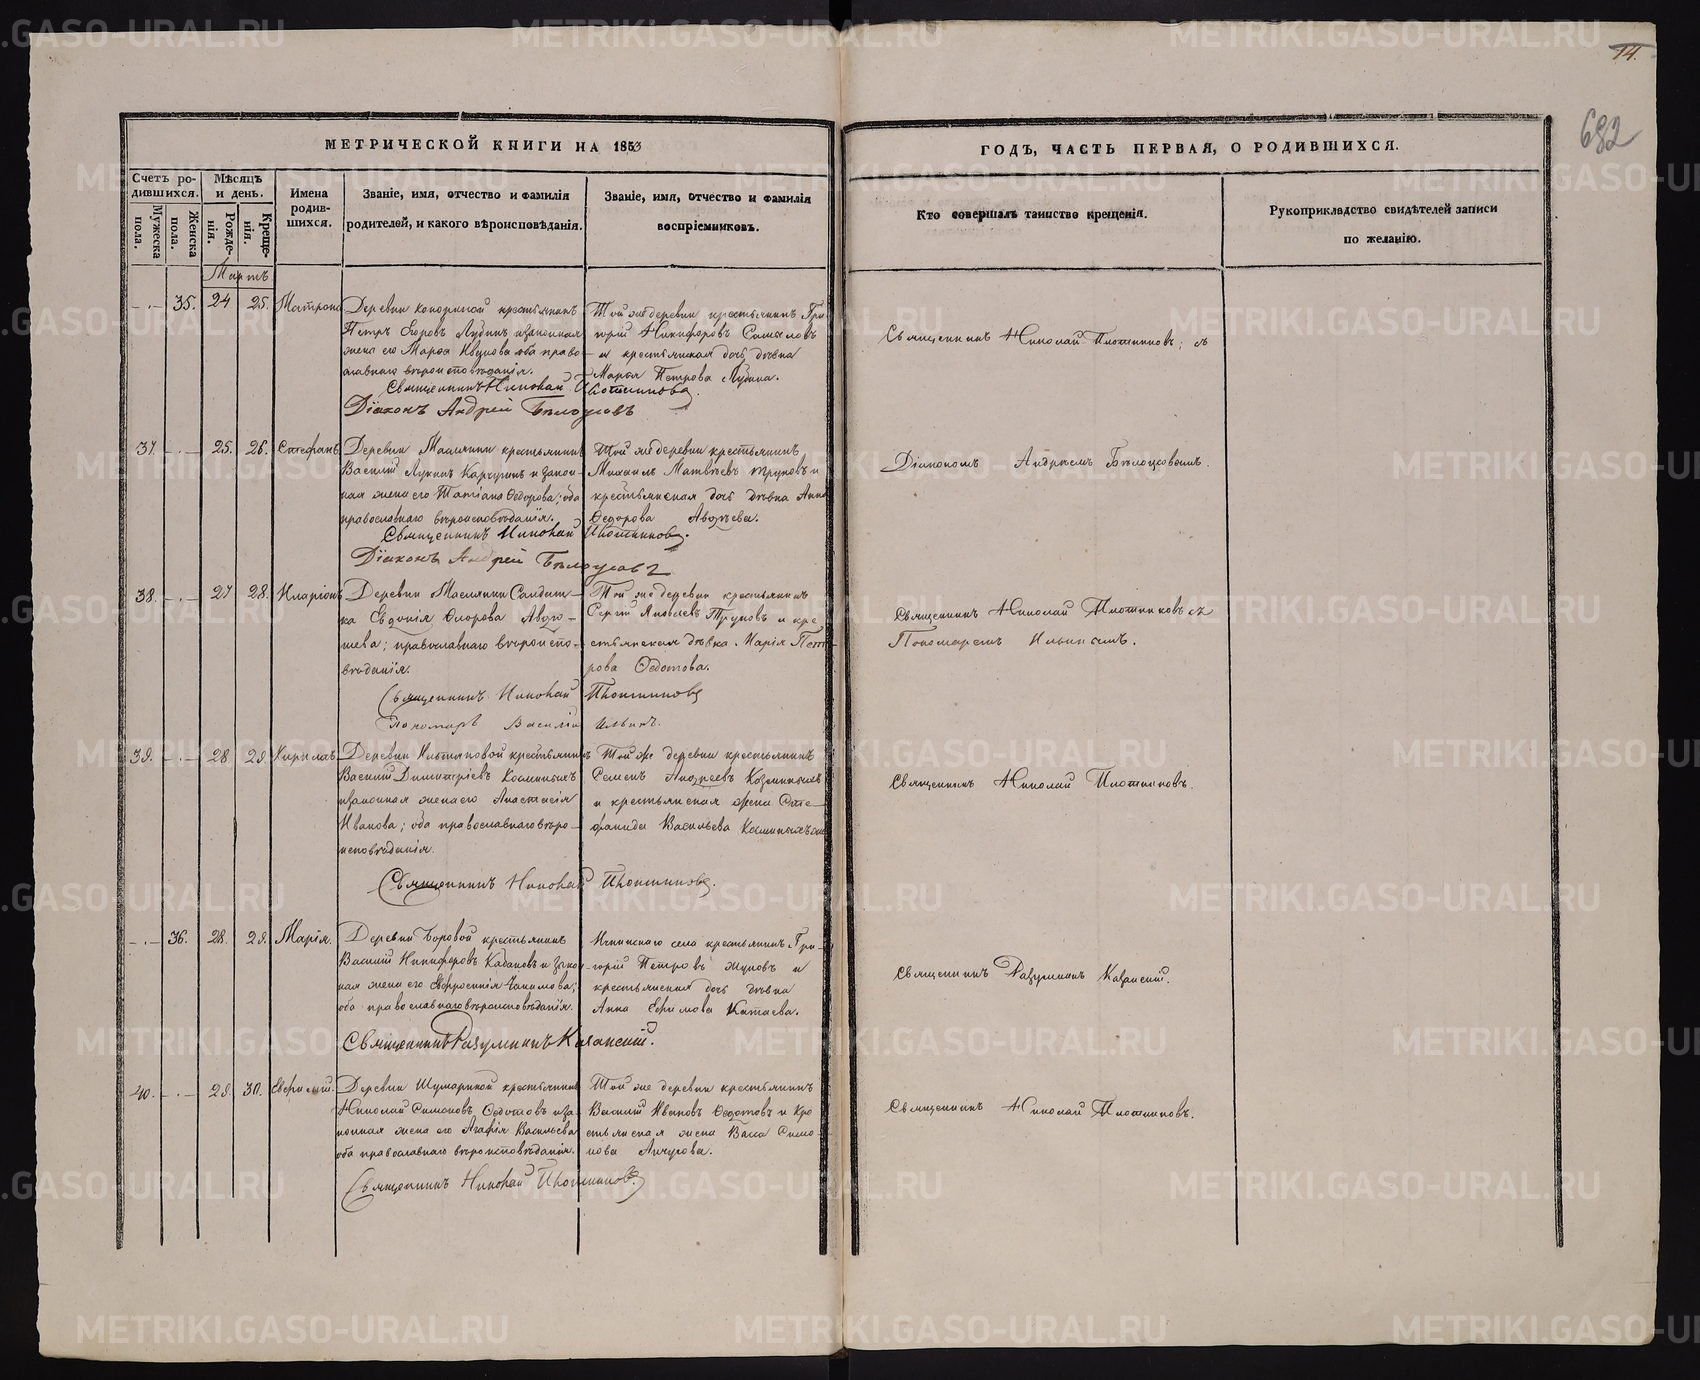 14.
682
МЕТРИЧЕСКОЙ КНИГИ НА 1853
ГОДЪ, ЧАСТЬ ПЕРВАЯ, О РОДИВШИХСЯ.
Счетъ ро-
дившихся.
Мужеска пола.
Женска пола.
Мѣсяцъ
и день.
Рожде-
нія.
Креще-
нія.
Имена
родив-
шихся.
Званіе, имя, отчество и фамилія
родителей, и какого вѣроисповѣданія.
Званіе, имя, отчество и фамилія
воспріемниковъ.
Кто совершалъ таинство крещенія.
Рукоприкладство свидѣтелей записи
по желанію.
Мартъ
35. 24 25. Матрона
Деревни крестьянинъ
Петръ Лукинъ и законная
жена его Марѳа оба право-
славнаго вѣроисповѣданія.
Той же деревни крестьянинъ Гри-
горій Никифоровъ
и крестьянская дочь дѣвка
Марья Петрова Лукина.
Священникъ Николай Плотниковъ.
Діаконъ Андрей Бѣлоусовъ
Священникъ Николай Плотниковъ; съ
37. 25. 26. Стефанъ.
Деревни Маслянки крестьянинъ
Василій Лукинъ и закон-
ная жена его Татіана Ѳедорова; оба
православнаго вѣроисповѣданія.
Той же деревни крестьянинъ
Михаилъ Матвѣевъ Труновъ и
крестьянская дочь дѣвка Анна
Ѳедорова Авдѣева.
Священникъ Николай Плотниковъ.
Діаконъ Андрей Бѣлоусовъ
Діакономъ Андреемъ Бѣлоусовымъ.
38. 27 28. Иларіонъ
Деревни Маслянки Салдат-
ка Евдокія
православнаго вѣроиспо-
вѣданія.
Той же деревни крестьянинъ
Сергій Яковлевъ Труновъ и кре-
стьянская дѣвка Марія Пет-
рова Ѳедотова.
Священникъ Николай Плотниковъ
Пономарь Василій Ильинъ.
Священникъ Николай Плотниковъ съ
Пономаремъ Ильинымъ.
39. 28 29. Кирилъ
Деревни крестьянинъ
Василій Димитріевъ
и законная жена его Анастасія
Иванова; оба православнаго вѣро-
исповѣданія.
Той же деревни крестьянинъ
Семенъ Андреевъ
и крестьянская жена Сте-
фанида Васильева
Священникъ Николай Плотниковъ.
Священникъ Николай Плотниковъ.
36. 28. 29. Марія.
Деревни Боровой крестьянинъ
Василій Никифоровъ Кабаковъ и закон-
ная жена его Евфросинія
оба православнаго вѣроисповѣданія.
села крестьянинъ Гри-
горій Петровъ и
крестьянская дочь дѣвка
Анна Ефимова Катаева.
Священникъ Разумникъ Казанскій.
Священникъ Разумникъ Казанскій.
40. 29. 30. Евфимій.
Деревни крестьянинъ
Николай Симоновъ Ѳедотовъ и за-
конная жена его Агафія Васильева
оба православнаго вѣроисповѣданія.
Той же деревни крестьянинъ
Василій Ивановъ Ѳедотовъ и кре
стьянская жена Васса Симо-
нова
Священникъ Николай Плотниковъ.
Священникъ Николай Плотниковъ.
METRIKI.GASO-URAL.RU